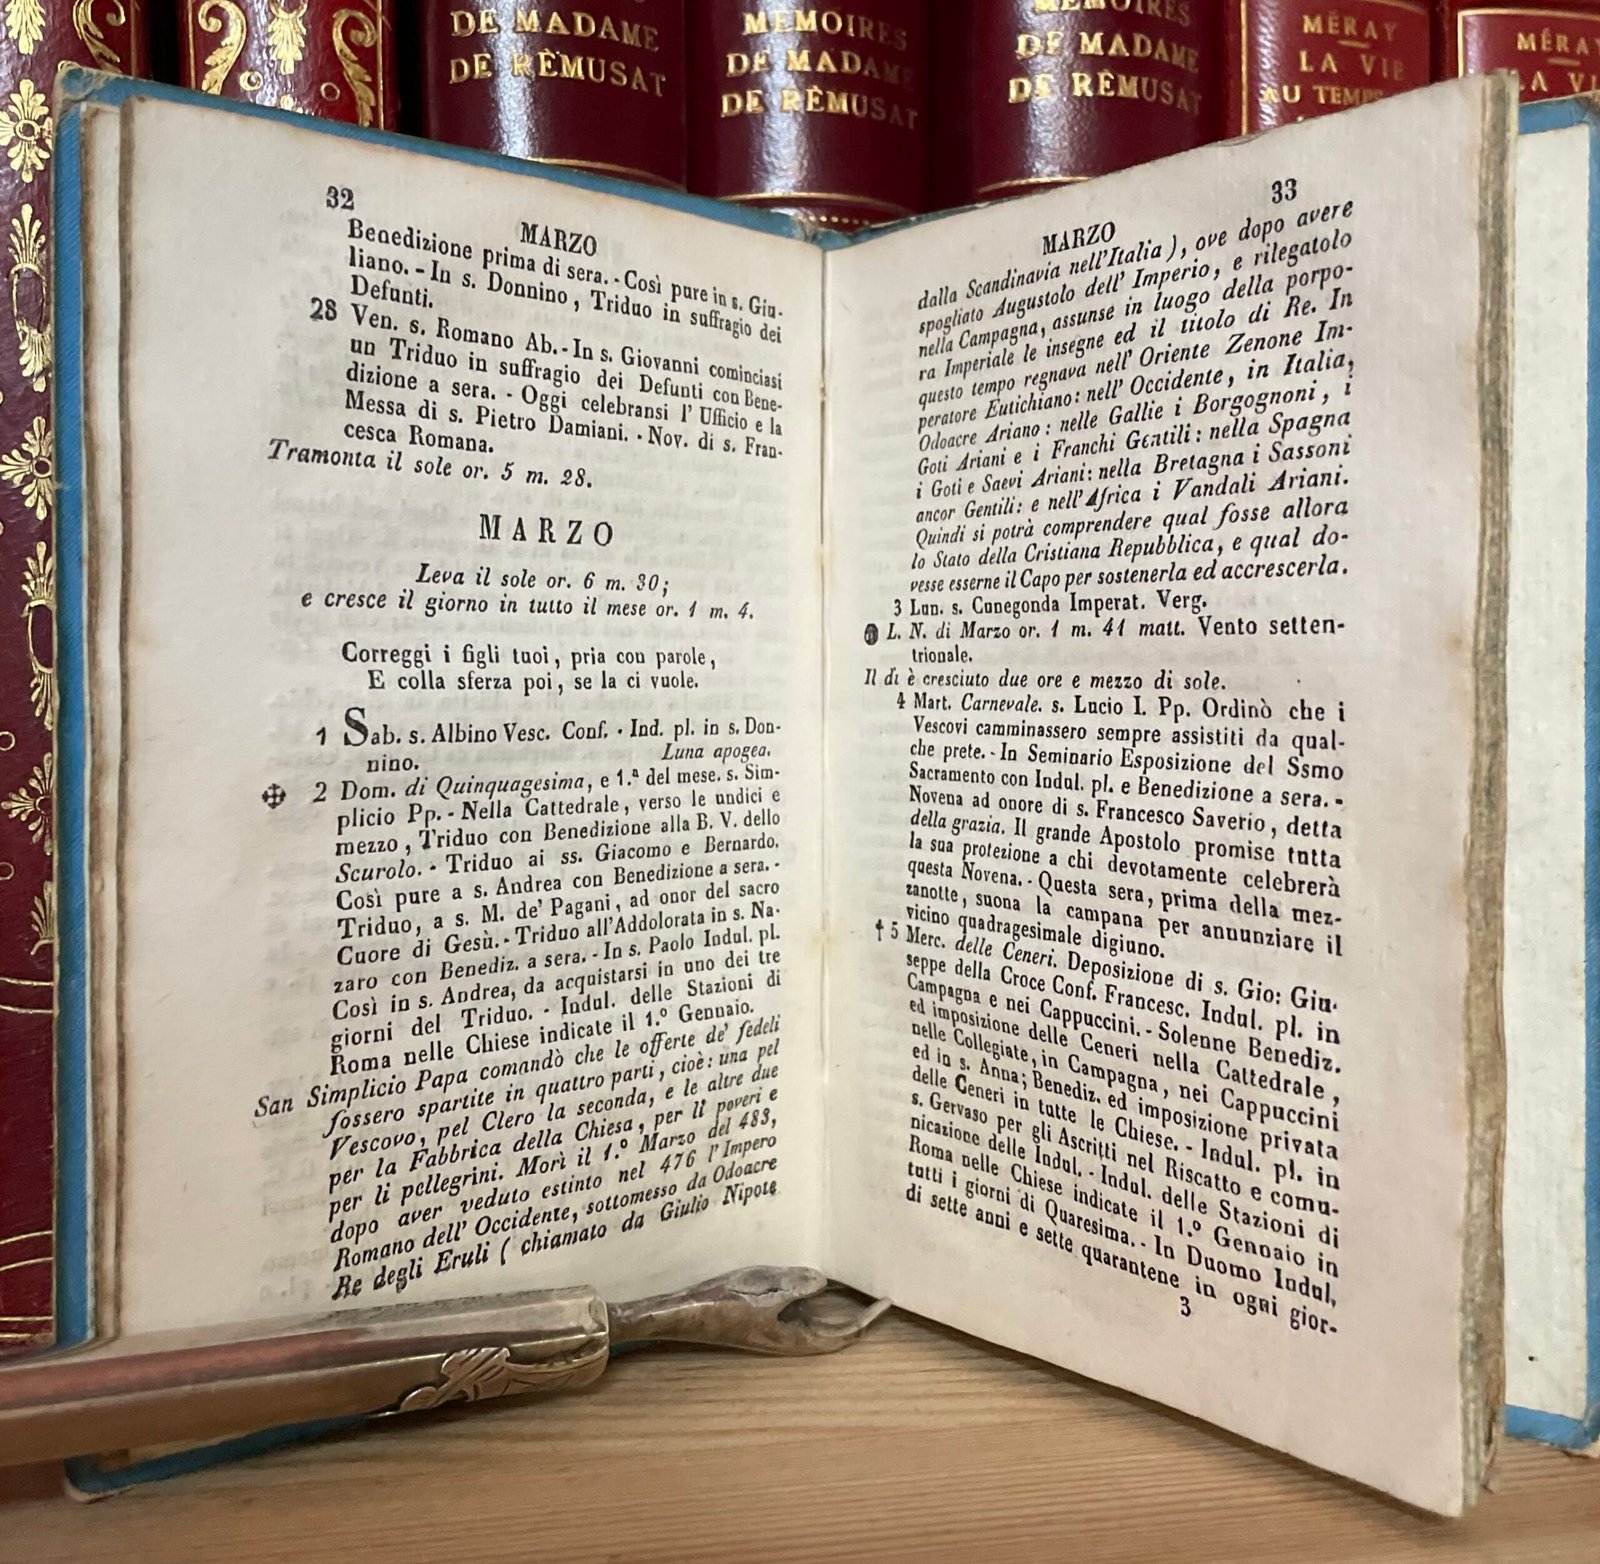 DE MADAME
DE RÉMUSAT
MÉMOIRES
DE MADAME
DE RÉMUSAT
MÉMOIRES
DE MADAME
DE RÉMUSAT
MÉRAY
LA VIE
AU TEMPS
MÉRAY
LA VIE
32
MARZO
Benedizione prima di sera. - Così pure in s. Giu-
liano. - In s. Donnino, Triduo in suffragio dei
Defunti.
28 Ven. s. Romano Ab. - In s. Giovanni cominciasi
un Triduo in suffragio dei Defunti con Bene-
dizione a sera. - Oggi celebransi l' Ufficio e la
Messa di s. Pietro Damiani. - Nov. di s. Fran-
cesca Romana.
Tramonta il sole or. 5 m. 28.
MARZO
Leva il sole or. 6 m. 30;
e cresce il giorno in tutto il mese or. 1 m. 4.
Correggi i figli tuoi, pria con parole,
E colla sferza poi, se la ci vuole.
1 Sab. s. Albino Vesc. Conf. - Ind. pl. in s. Don-
nino. Luna apogea.
✠ 2 Dom. di Quinquagesima, e 1.ª del mese. s. Sim-
plicio Pp. - Nella Cattedrale, verso le undici e
mezzo, Triduo con Benedizione alla B. V. dello
Scurolo. - Triduo ai ss. Giacomo e Bernardo.
Così pure a s. Andrea con Benedizione a sera. -
Triduo, a s. M. de' Pagani, ad onor del sacro
Cuore di Gesù. - Triduo all'Addolorata in s. Na-
zaro con Benediz. a sera. - In s. Paolo Indul. pl.
Così in s. Andrea, da acquistarsi in uno dei tre
giorni del Triduo. - Indul. delle Stazioni di
Roma nelle Chiese indicate il 1.º Gennaio.
San Simplicio Papa comandò che le offerte de' fedeli
fossero spartite in quattro parti, cioè: una pel
Vescovo, pel Clero la seconda, e le altre due
per la Fabbrica della Chiesa, per li poveri e
per li pellegrini. Morì il 1.º Marzo del 483,
dopo aver veduto estinto nel 476 l'Impero
Romano dell' Occidente, sottomesso da Odoacre
Re degli Eruli ( chiamato da Giulio Nipote
33
MARZO
dalla Scandinavia nell'Italia), ove dopo avere
spogliato Augustolo dell' Imperio, e rilegatolo
nella Campagna, assunse in luogo della porpo-
ra Imperiale le insegne ed il titolo di Re. In
questo tempo regnava nell' Oriente Zenone Im-
peratore Eutichiano: nell' Occidente, in Italia,
Odoacre Ariano: nelle Gallie i Borgognoni, i
Goti Ariani e i Franchi Gentili: nella Spagna
i Goti e Saevi Ariani: nella Bretagna i Sassoni
ancor Gentili: e nell'Africa i Vandali Ariani.
Quindi si potrà comprendere qual fosse allora
lo Stato della Cristiana Repubblica, e qual do-
vesse esserne il Capo per sostenerla ed accrescerla.
3 Lun. s. Cunegonda Imperat. Verg.
L. N. di Marzo or. 1 m. 41 matt. Vento setten-
trionale.
Il dì è cresciuto due ore e mezzo di sole.
4 Mart. Carnevale. s. Lucio I. Pp. Ordinò che i
Vescovi camminassero sempre assistiti da qual-
che prete. - In Seminario Esposizione del Ssmo
Sacramento con Indul. pl. e Benedizione a sera. -
Novena ad onore di s. Francesco Saverio, detta
della grazia. Il grande Apostolo promise tutta
la sua protezione a chi devotamente celebrerà
questa Novena. - Questa sera, prima della mez-
zanotte, suona la campana per annunziare il
vicino quadragesimale digiuno.
† 5 Merc. delle Ceneri. Deposizione di s. Gio: Giu-
seppe della Croce Conf. Francesc. Indul. pl. in
Campagna e nei Cappuccini. - Solenne Benediz.
ed imposizione delle Ceneri nella Cattedrale,
nelle Collegiate, in Campagna, nei Cappuccini
ed in s. Anna; Benediz. ed imposizione privata
delle Ceneri in tutte le Chiese. - Indul. pl. in
s. Gervaso per gli Ascritti nel Riscatto e comu-
nicazione delle Indul. - Indul. delle Stazioni di
Roma nelle Chiese indicate il 1.º Gennaio in
tutti i giorni di Quaresima. - In Duomo Indul,
di sette anni e sette quarantene in ogni gior-
3